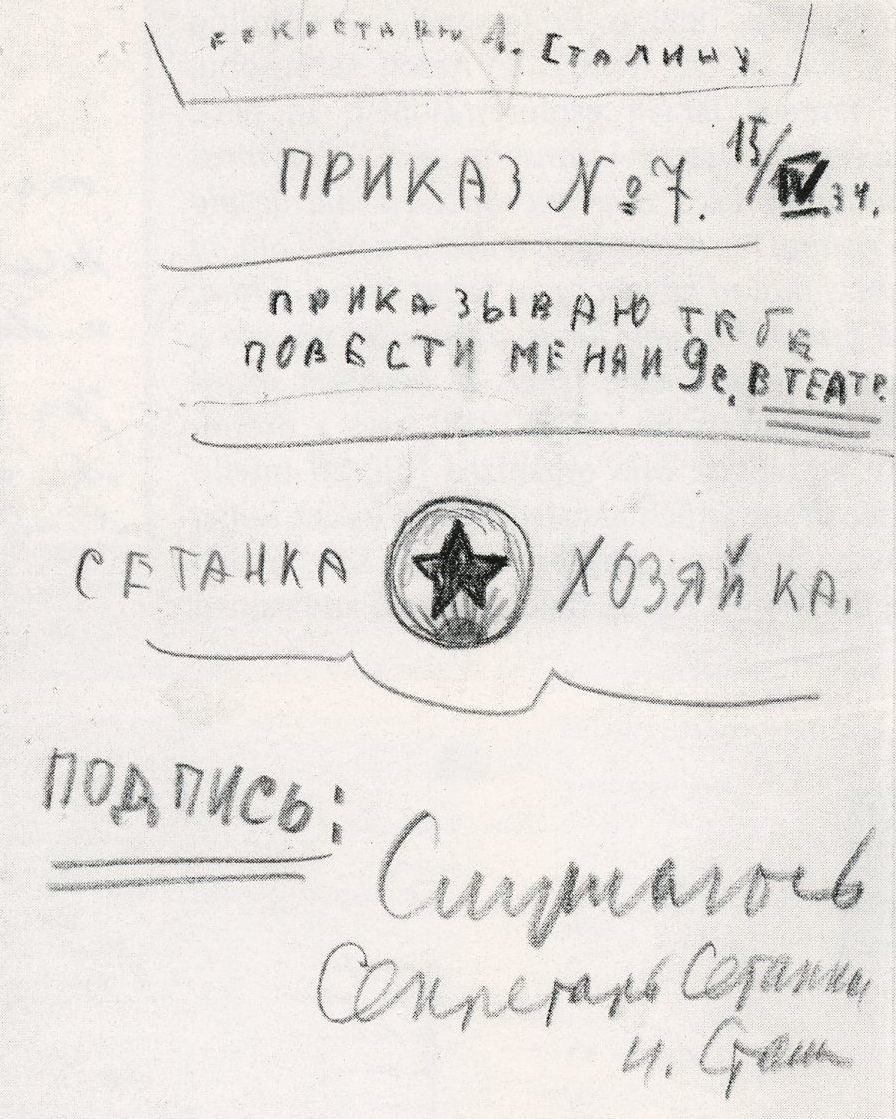 СЕКРЕТАРЮ 1. СТАЛИНУ.
ПРИКАЗ № 7. 15/IV.34.
ПРИКАЗЫВАЮ ТЕБЕ
ПОВЕСТИ МЕНЯ И В ТЕАТР.
СЕТАНКА ХОЗЯЙКА.
ПОДПИСЬ:
Слушаюсь
Секретарь Сетанки
И. Сталин